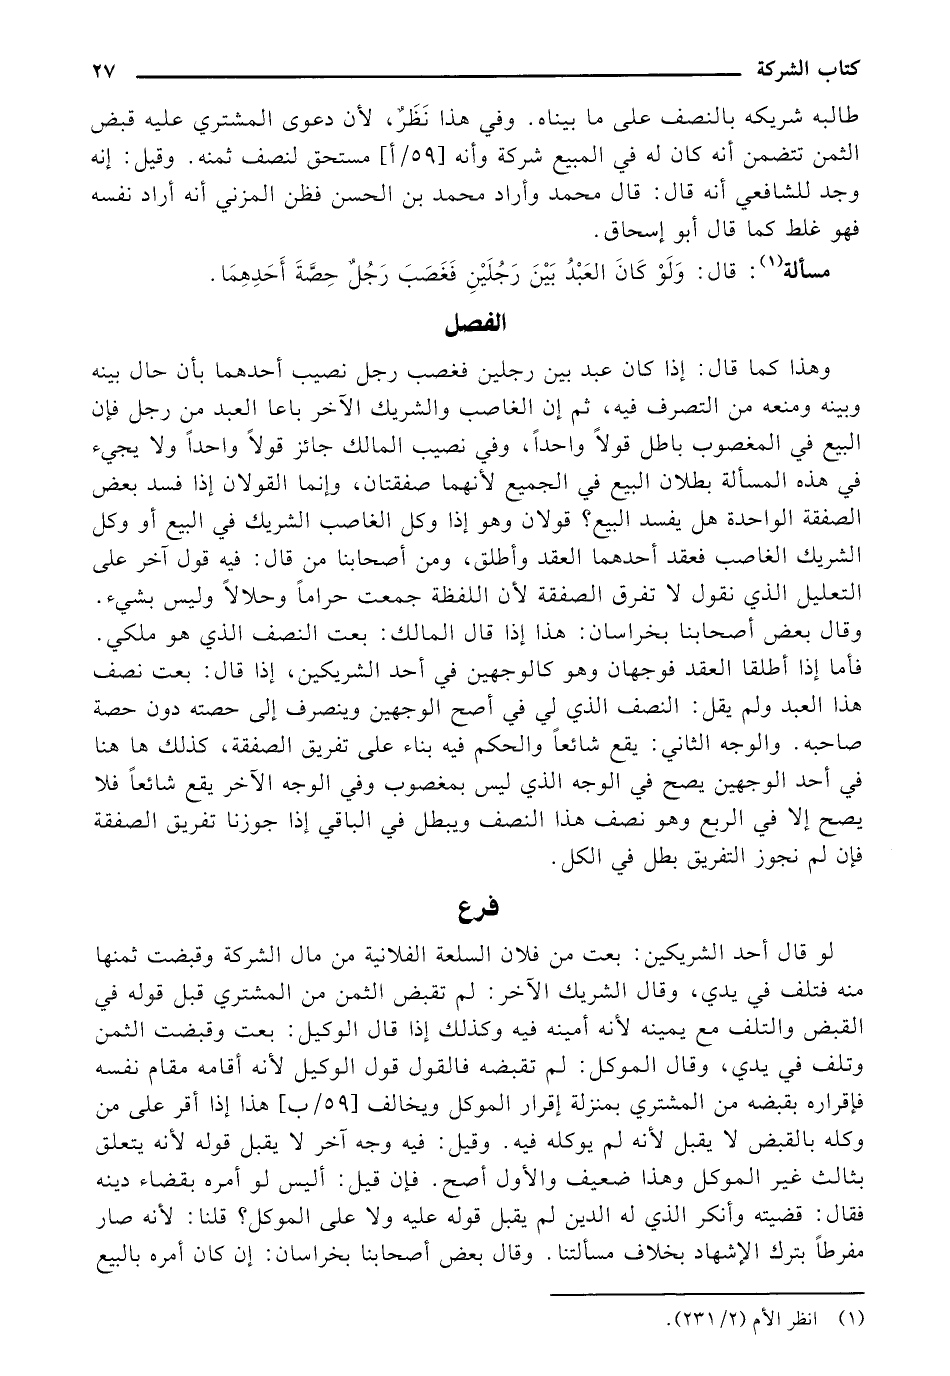 كتاب الشركة ٢٧
طالبه شريكه بالنصف على ما بيناه. وفي هذا نَظَرٌ، لأن دعوى المشتري عليه قبض
الثمن تتضمن أنه كان له في المبيع شركة وأنه [٥٩/أ] مستحق لنصف ثمنه. وقيل: إنه
وجد للشافعي أنه قال: قال محمد وأراد محمد بن الحسن فظن المزني أنه أراد نفسه
فهو غلط كما قال أبو إسحاق.
مسألة(١): قال: وَلَوْ كَانَ العَبْدُ بَيْنَ رَجُلَيْنِ فَغَصَبَ رَجُلٌ حِصَّةَ أَحَدِهِمَا.
الفصل
وهذا كما قال: إذا كان عبد بين رجلين فغصب رجل نصيب أحدهما بأن حال بينه
وبينه ومنعه من التصرف فيه، ثم إن الغاصب والشريك الآخر باعا العبد من رجل فإن
البيع في المغصوب باطل قولاً واحداً، وفي نصيب المالك جائز قولاً واحداً ولا يجيء
في هذه المسألة بطلان البيع في الجميع لأنهما صفقتان، وإنما القولان إذا فسد بعض
الصفقة الواحدة هل يفسد البيع؟ قولان وهو إذا وكل الغاصب الشريك في البيع أو وكل
الشريك الغاصب فعقد أحدهما العقد وأطلق، ومن أصحابنا من قال: فيه قول آخر على
التعليل الذي نقول لا تفرق الصفقة لأن اللفظة جمعت حراماً وحلالاً وليس بشيء.
وقال بعض أصحابنا بخراسان: هذا إذا قال المالك: بعت النصف الذي هو ملكي.
فأما إذا أطلقا العقد فوجهان وهو كالوجهين في أحد الشريكين، إذا قال: بعت نصف
هذا العبد ولم يقل: النصف الذي لي في أصح الوجهين وينصرف إلى حصته دون حصة
صاحبه. والوجه الثاني: يقع شائعاً والحكم فيه بناء على تفريق الصفقة، كذلك ها هنا
في أحد الوجهين يصح في الوجه الذي ليس بمغصوب وفي الوجه الآخر يقع شائعاً فلا
يصح إلا في الربع وهو نصف هذا النصف ويبطل في الباقي إذا جوزنا تفريق الصفقة
فإن لم نجوز التفريق بطل في الكل.
فرع
لو قال أحد الشريكين: بعت من فلان السلعة الفلانية من مال الشركة وقبضت ثمنها
منه فتلف في يدي، وقال الشريك الآخر: لم تقبض الثمن من المشتري قبل قوله في
القبض والتلف مع يمينه لأنه أمينه فيه وكذلك إذا قال الوكيل: بعت وقبضت الثمن
وتلف في يدي، وقال الموكل: لم تقبضه فالقول قول الوكيل لأنه أقامه مقام نفسه
فإقراره بقبضه من المشتري بمنزلة إقرار الموكل ويخالف [٥٩/ب] هذا إذا أقر على من
وكله بالقبض لا يقبل لأنه لم يوكله فيه. وقيل: فيه وجه آخر لا يقبل قوله لأنه يتعلق
بثالث غير الموكل وهذا ضعيف والأول أصح. فإن قيل: أليس لو أمره بقضاء دينه
فقال: قضيته وأنكر الذي له الدين لم يقبل قوله عليه ولا على الموكل؟ قلنا: لأنه صار
مفرطاً بترك الإشهاد بخلاف مسألتنا. وقال بعض أصحابنا بخراسان: إن كان أمره بالبيع
(١) انظر الأم (٢/ ٢٣١).